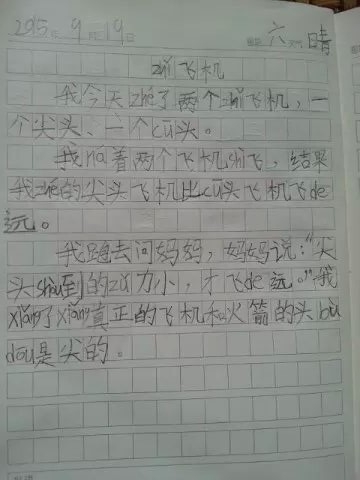 2015年9月19日 星期六 天气晴
zhǐ飞机
我今天zhé了两个zhǐ飞机，一
个尖头、一个cū头。
我ná着两个飞机shì飞，结果
我zhé的尖头飞机比cū头飞机飞de
远。
我跑去问妈妈，妈妈说：“尖
头shòu到的zǔ力小，才飞de远。”我
xiǎng了xiǎng真正的飞机和火箭的头bù
dōu是尖的。